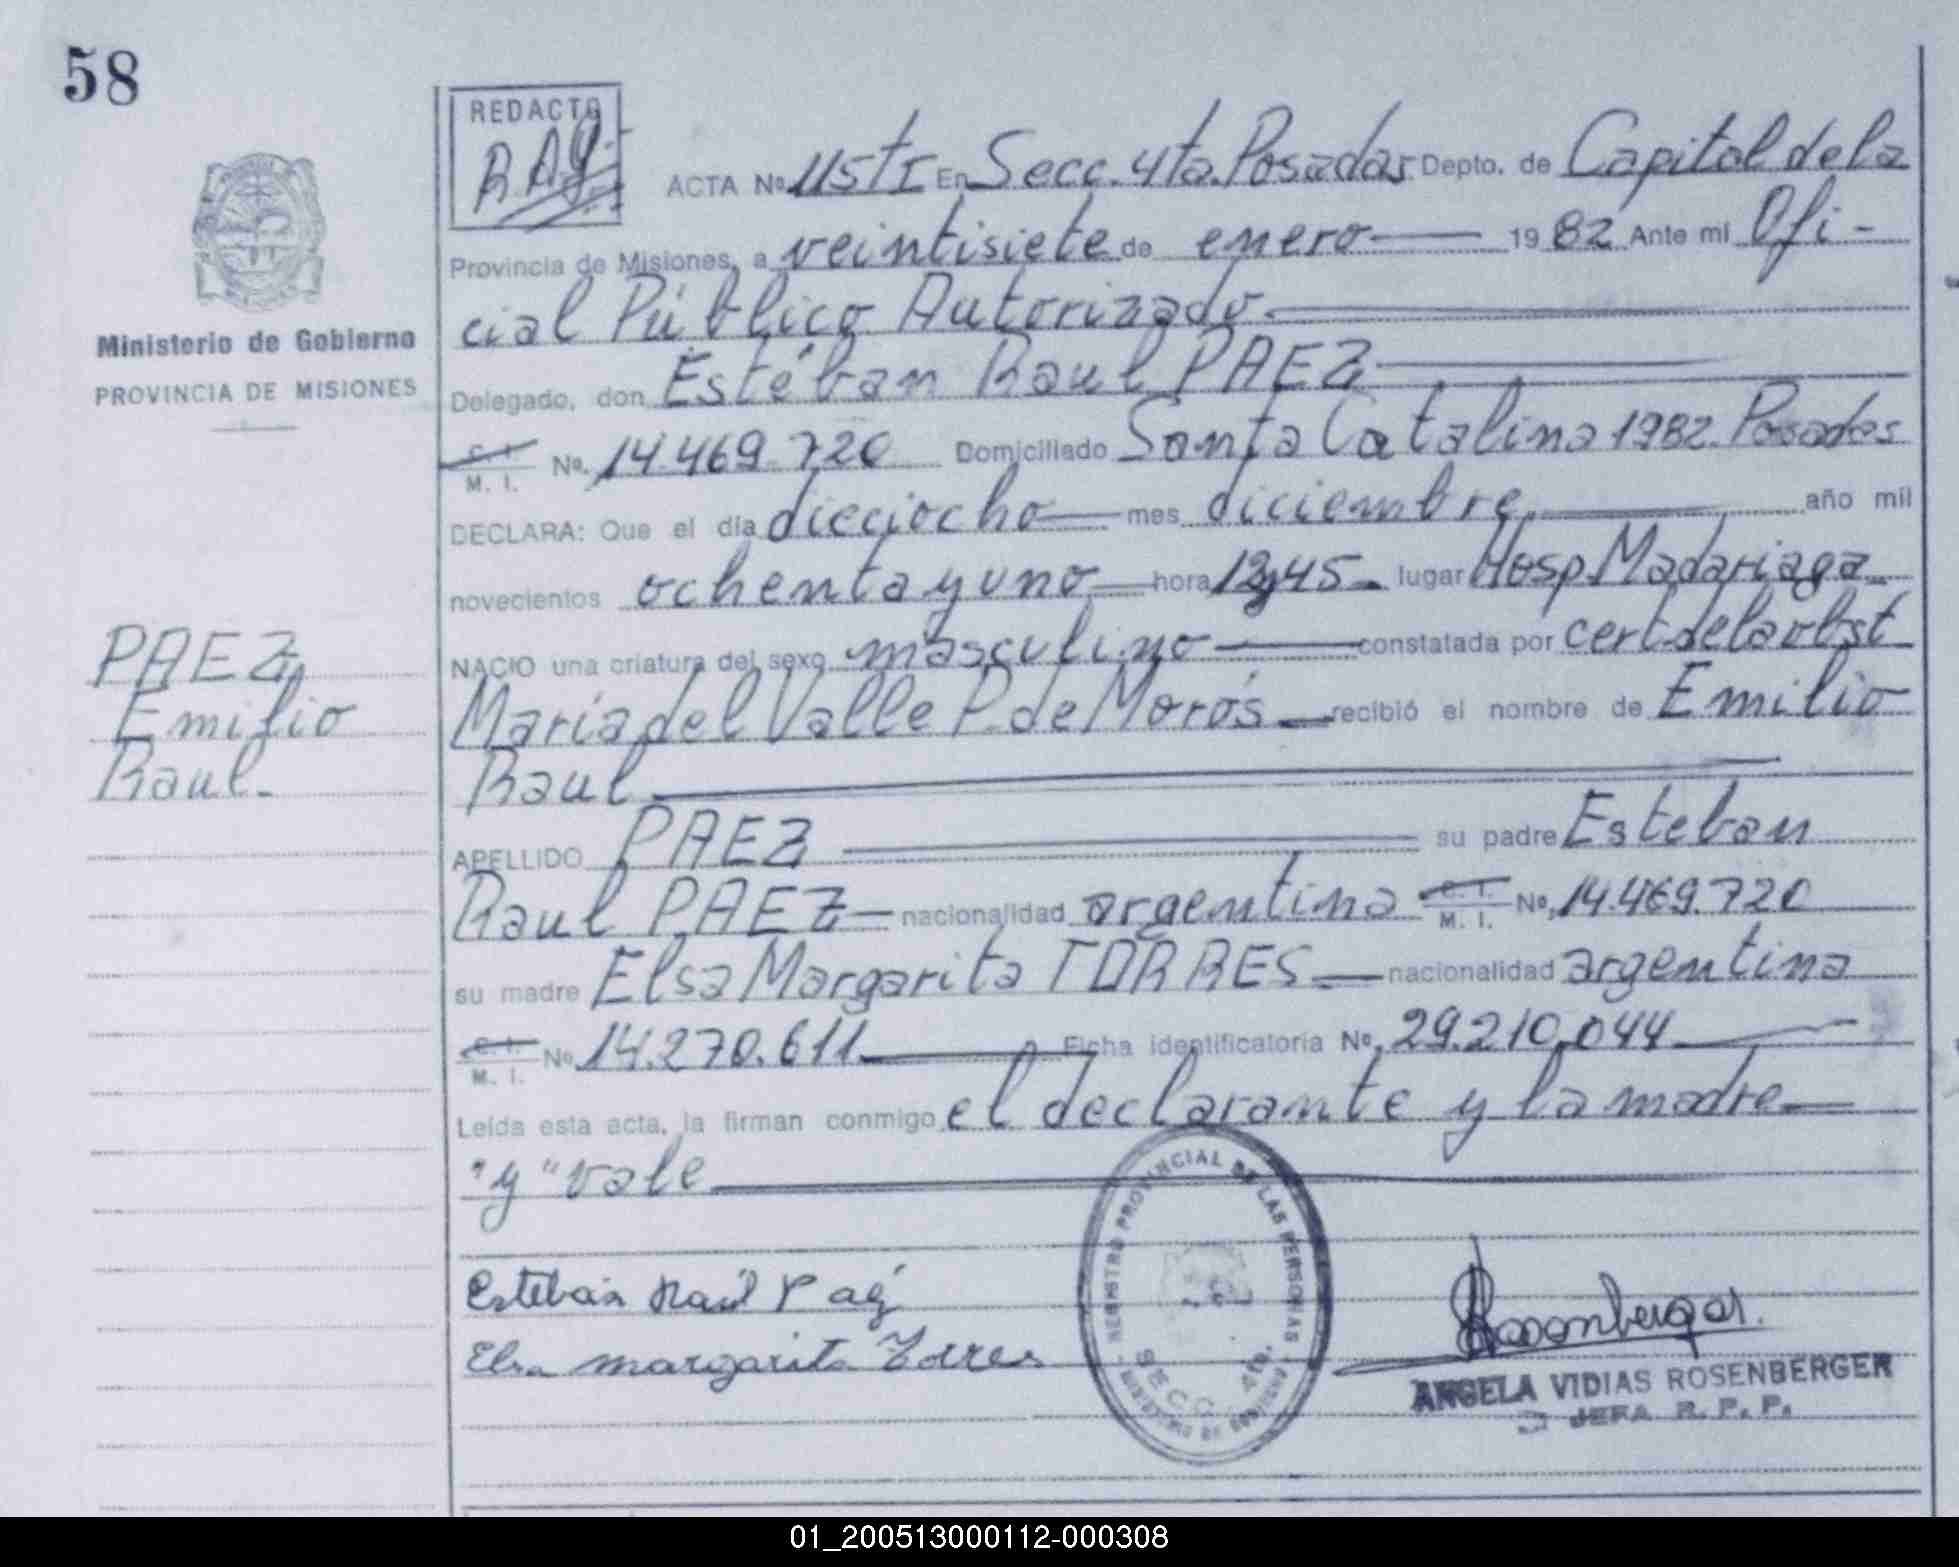 58
REDACTO
ACTA No. 115 tI En Secc. 4ta. Posadas Depto. de Capital de la
Provincia de Misiones, a veintisiete de enero 19 82 Ante mí Ofi-
cial Público Autorizado.
Ministerio de Gobierno
PROVINCIA DE MISIONES
Delegado, don Estéban Raul PAEZ
C. I. M. I. No. 14.469.720 Domiciliado Santa Catalina 1982. Posadas
DECLARA: Que el día dieciocho mes diciembre año mil
novecientos ochenta y uno hora 12y45 lugar Hosp. Madariaga
NACIO una criatura del sexo masculino constatada por cert. de la obst
PAEZ
Emilio
Raul.
María del Valle P. de Morós recibió el nombre de Emilio
Raul
APELLIDO PAEZ su padre Esteban
Raul PAEZ nacionalidad argentina C. I. M. I. No. 14.469.720
su madre Elsa Margarita TORRES nacionalidad argentina
C. I. M. I. No. 14.270.611 Ficha identificatoria No. 29.210.044
Leída esta acta, la firman conmigo el declarante y la madre
"y" vale
REGISTRO PROVINCIAL DE LAS PERSONAS
SECC. 4ta.
MINISTERIO DE GOBIERNO
Esteban Raúl Paéz
Elsa margarita Torres
Rosenberger
ANGELA VIDIAS ROSENBERGER
JEFA R. P. P.
01_200513000112-000308